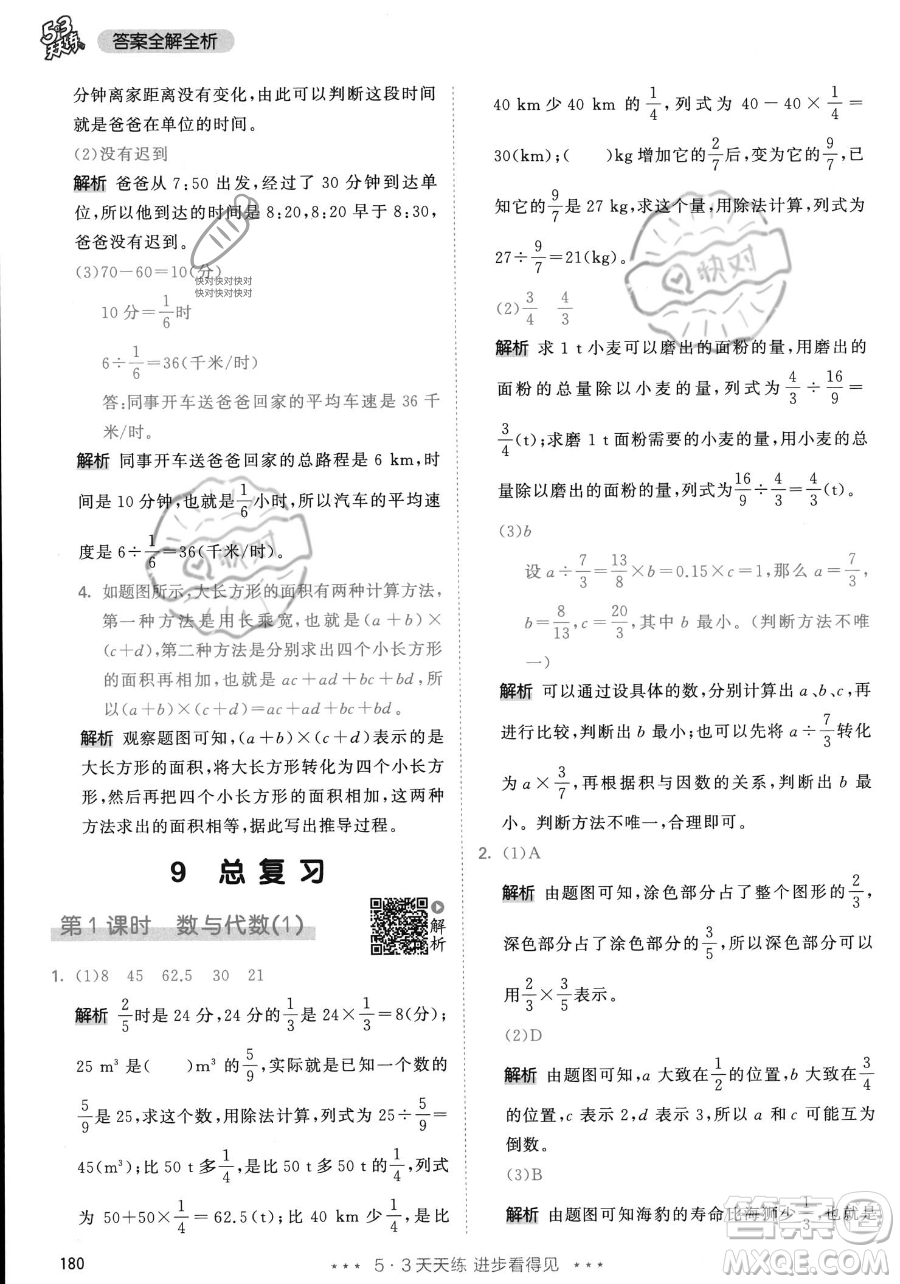 5·3天天练
答案全解全析
分钟离家距离没有变化,由此可以判断这段时间
就是爸爸在单位的时间。
(2)没有迟到
解析 爸爸从 7:50 出发,经过了 30 分钟到达单
位,所以他到达的时间是 8:20,8:20 早于 8:30,
爸爸没有迟到。
(3)70-60=10(分)
10 分=1/6时
6÷1/6=36(千米/时)
答:同事开车送爸爸回家的平均车速是 36 千
米/时。
解析 同事开车送爸爸回家的总路程是 6 km,时
间是 10 分钟,也就是1/6小时,所以汽车的平均速
度是 6÷1/6=36(千米/时)。
4. 如题图所示,大长方形的面积有两种计算方法,
第一种方法是用长乘宽,也就是(a+b)×
(c+d),第二种方法是分别求出四个小长方形
的面积,也就是 ac+ad+bc+bd,所
以(a+b)×(c+d)=ac+ad+bc+bd。
解析 观察题图可知,(a+b)×(c+d)表示的是
大长方形的面积,把大长方形转化成四个小长方
形,然后按照大长方形的面积和四个小长方形两种
方法求出的面积相等,据此写出推导过程。
9 总复习
第 1 课时 数与代数(1)
解析
1. (1)8 45 62.5 30 21
解析 2/5时是 24 分,24 分的1/3是 24×1/3=8(分);
25 m³ 是( )m³ 的5/9,实际就是已知一个数的
5/9是 25,求这个数,用除法计算,列式为 25÷5/9=
45(m³);比 50 t 多1/4,就是比 50 t 多 50 t 的1/4,列式
为 50+50×1/4=62.5(t);比 40 km 少1/4,就是比
40 km 少 40 km 的1/4,列式为 40-40×1/4=
30(km);( )kg 增加它的2/7后,变为它的9/7,已
知它的9/7是 27 kg,求这个量,用除法计算,列式为
27÷9/7=21(kg)。
(2)3/4 4/3
解析 求 1 t 小麦可以磨出的面粉的量,用磨出的
面粉的总量除以小麦的量,列式为4/3÷16/9=
3/4(t);求磨 1 t 面粉需要的小麦的量,用小麦的总
量除以磨出的面粉的量,列式为16/9÷4/3=4/3(t)。
(3)b
设 a÷7/3=13/8×b=0.15×c=1,那么 a=7/3,
b=8/13,c=20/3,b 最小。(判断方法不唯
一)
解析 可以先设具体的数,分别计算出 a、b、c,再
进行比较,判断出 b 最小;也可以先将 a÷7/3转化
为 a×3/7,再根据积与因数的关系,判断出 b 最
小。判断方法不唯一,合理即可。
2. (1)A
解析 由题图可知,涂色部分占了整个图形的2/3,
深色部分占了涂色部分的3/5,所以深色部分可以
用2/3×3/5表示。
(2)D
解析 由题图可知,a 大致在1/2的位置,b 大致在3/4
的位置,c 表示 2,d 表示 3,所以 a 和 c 可能互为
倒数。
(3)B
解析 由题图可知海豹的寿命比海狮少1/4,也就是
180
5·3天天练 进步看得见
快对
快对
快对快对快对
快对快对快对
答案圈